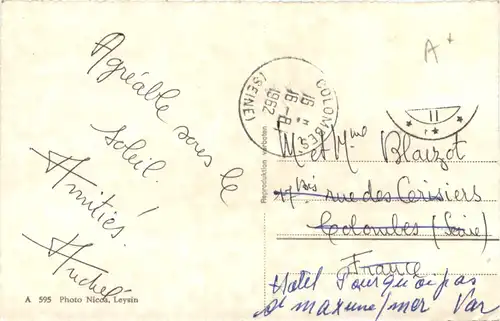 Agréable sous le
soleil !
Amitiés.
Michel
A 595 Photo Nicca, Leysin
Reproduktion verboten
COLOMBES
(SEINE)
16 H
16 - 8
1962
A+
M et Mme Blaizot
bis rue des Cerisiers
Colombes (Seine)
France
Hotel Pourquoi pas
St maxime/mer Var